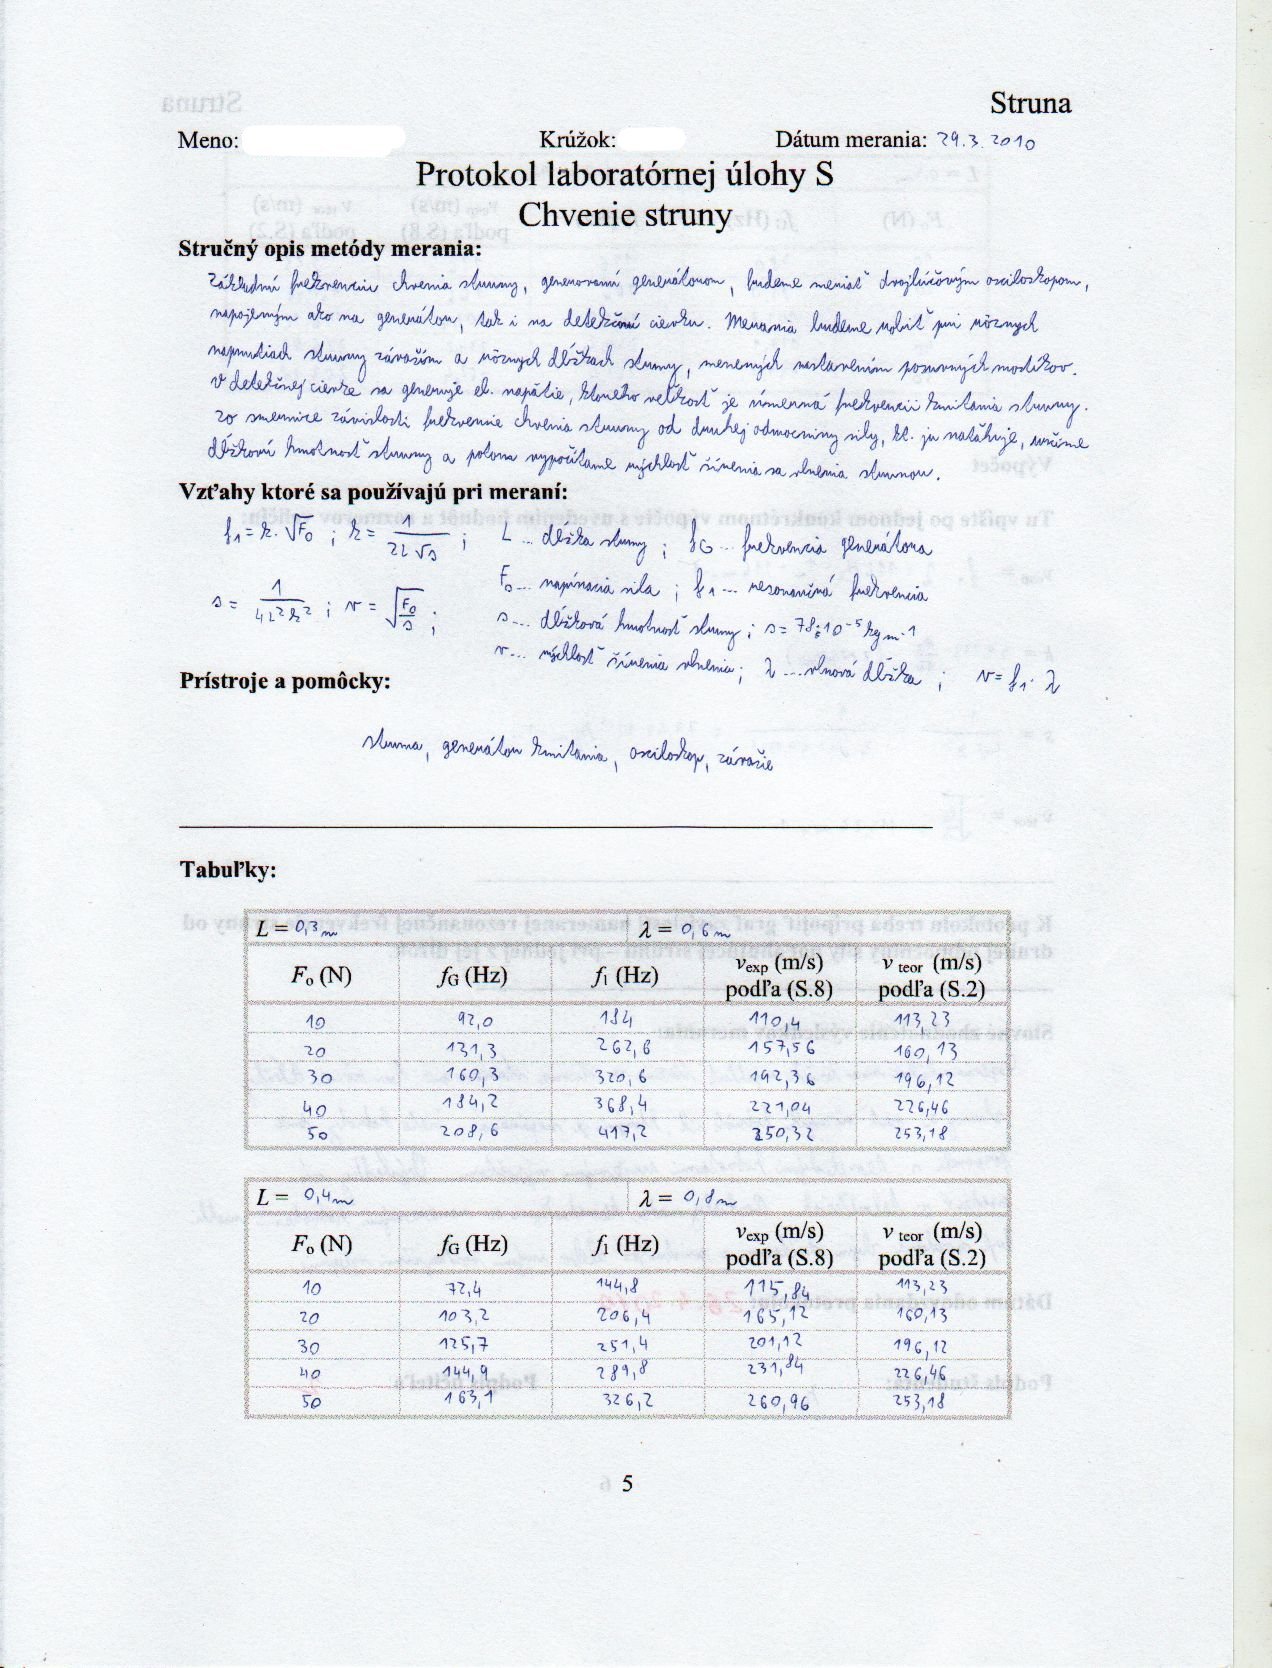 Struna
Meno: Krúžok: Dátum merania: 29.3.2010
Protokol laboratórnej úlohy S
Chvenie struny
Stručný opis metódy merania:
Základnú frekvenciu chvenia struny, generovanú generátorom, budeme merať dvojlúčovým osciloskopom,
napojeným ako na generátor, tak i na detekčnú cievku. Merania budeme robiť pri rôznych
napnutiach struny závažím a rôznych dĺžkach struny, menených nastavením posuvných mostíkov.
V detekčnej cievke sa generuje el. napätie, ktorého veľkosť je úmerná frekvencii kmitania struny.
Zo smernice závislosti frekvencie chvenia struny od druhej odmocniny sily, kt. ju naťahuje, určíme
dĺžkovú hmotnosť struny a potom vypočítame rýchlosť šírenia sa vlnenia strunou.
Vzťahy ktoré sa používajú pri meraní:
f₁ = k·√F₀ ; k = 1/(2L√s) ; L ... dĺžka struny ; f_G ... frekvencia generátora
F₀ ... napínacia sila ; f₁ ... rezonančná frekvencia
s = 1/(4L²k²) ; v = √(F₀/s) ; s ... dĺžková hmotnosť struny ; s = 78·10⁻⁵ kg m⁻¹
v ... rýchlosť šírenia vlnenia ; λ ... vlnová dĺžka ; v = f₁ · λ
Prístroje a pomôcky:
struna, generátor kmitania, osciloskop, závažie
Tabuľky:
L = 0,3 m λ = 0,6 m
Fₒ (N) fG (Hz) f₁ (Hz) vexp (m/s) podľa (S.8) v teor (m/s) podľa (S.2)
10 92,0 184 110,4 113,23
20 131,3 262,6 157,56 160,13
30 160,3 320,6 192,36 196,12
40 184,2 368,4 221,04 226,46
50 208,6 417,2 250,32 253,18
L = 0,4 m λ = 0,8 m
Fₒ (N) fG (Hz) f₁ (Hz) vexp (m/s) podľa (S.8) v teor (m/s) podľa (S.2)
10 72,4 144,8 115,84 113,23
20 103,2 206,4 165,12 160,13
30 125,7 251,4 201,12 196,12
40 144,9 289,8 231,84 226,46
50 163,1 326,2 260,96 253,18
5